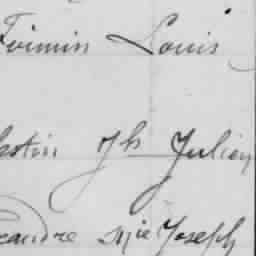 Firmin Louis
lestin Jh Julien
xandre Mie Joseph